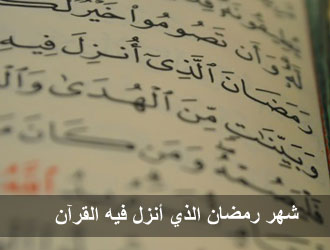 وَأَن تَصُومُوا۟ خَيْرٌ لَّكُ
رَمَضَانَ ٱلَّذِىٓ أُنزِلَ فِيهِ
وَبَيِّنَـٰتٍ مِّنَ ٱلْهُدَىٰ وَٱلْ
وَمَن كَانَ مَ
شهر رمضان الذي أنزل فيه القرآن